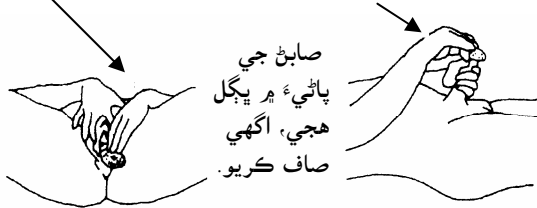 صابڻ جي
پاڻيءَ ۾ ڀڳل
هجي، اگهي
صاف ڪريو.